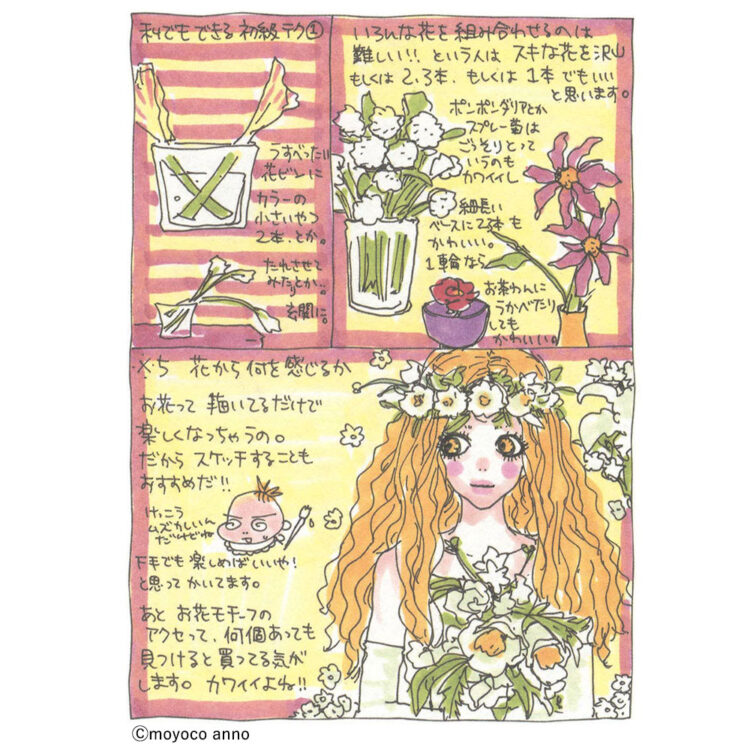 私でもできる初級テク①
うすべったい
花ビンに
カラーの
小さいやつ
2本、とか。
たれさせて
みたりとか…。
玄関に。
いろんな花を組み合わせるのは
難しい!! という人は スキな花を沢山
もしくは 2、3本、もしくは 1本 でもいい
と思います。
ポンポンダリアとか
スプレー菊は
ごっそりとって
いうのも
カワイイし
細長い
ベースに2、3本も
かわいい。
1輪なら
お茶わんに
うかべたり
しても
かわいい。
花から何を感じるか
お花って 描いてるだけで
楽しくなっちゃうの。
だから スケッチすることも
おすすめだ!!
けっこう
ムズかしいん
だけどね
下手でも 楽しめばいいや!
と思って かいてます。
あと お花モチーフの
アクセって、何個あっても
見つけると買ってる気が
します。カワイイよね!!
©moyoco anno